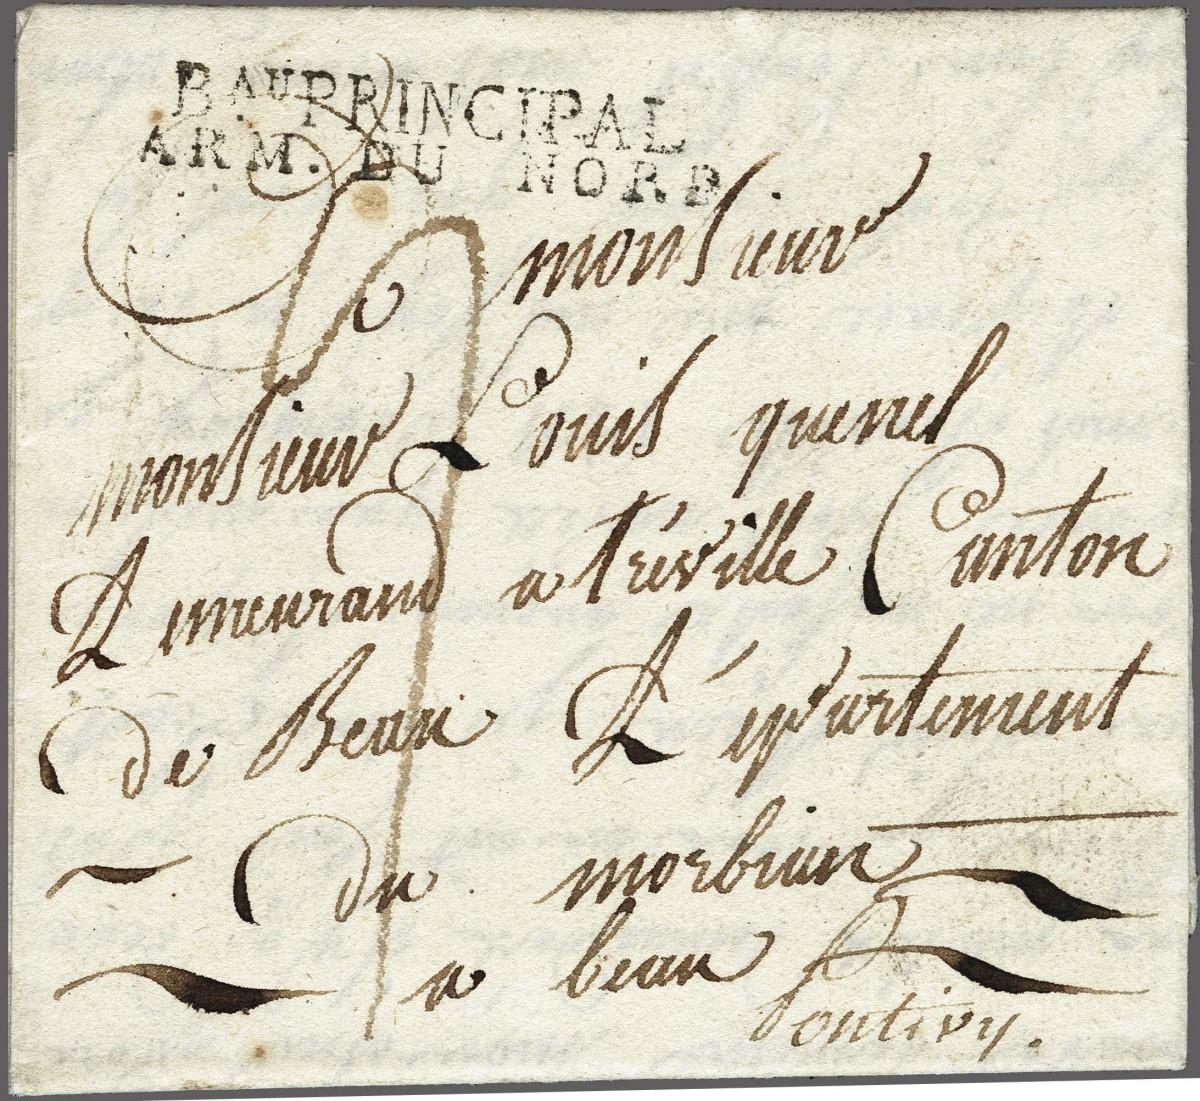 BAU PRINCIPAL
ARM. DU NORD
monsieur
monsieur Louis quenel
Demeurand a tréville Canton
de Beau Département
du morbian
a beau
Pontivy.